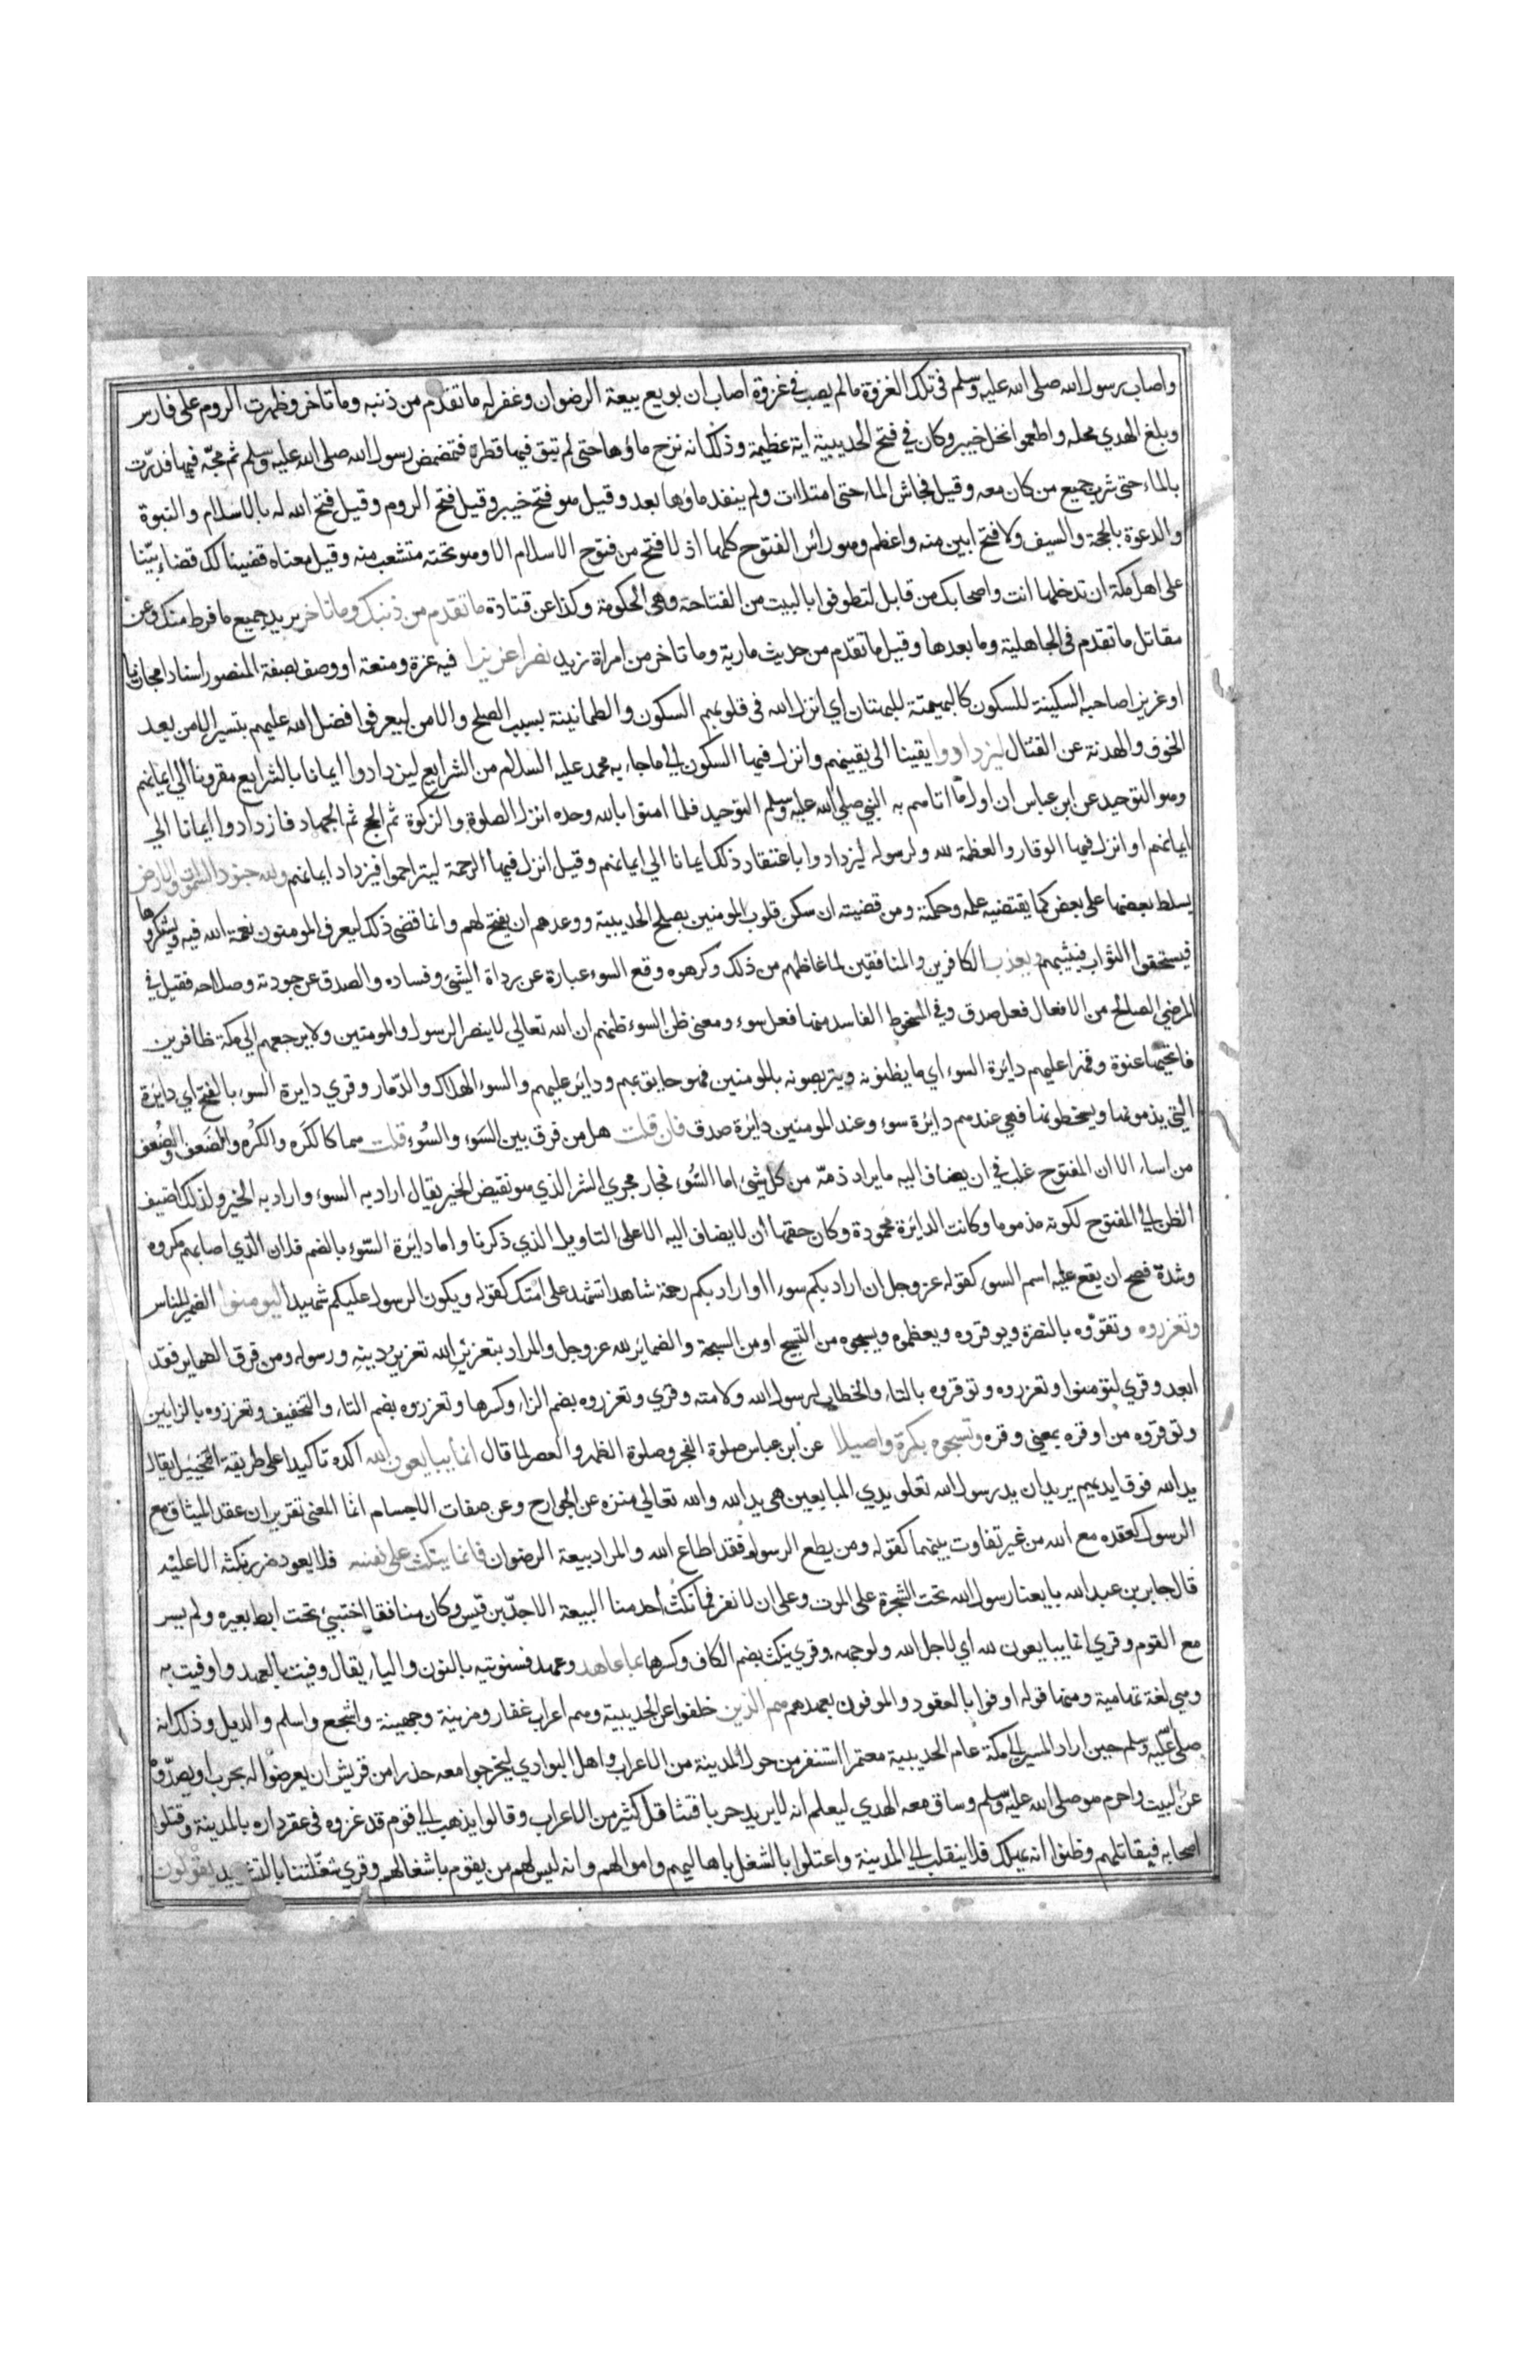 واصاب رسول الله صلى الله عليه وسلم في تلك الغزوة ما لم يصب في غزوة اصاب ان بويع بيعة الرضوان وغفر له ما تقدم من ذنبه وما تاخر وظهرت الروم على فارس
وبلغ الهدي محله واطعموا نخل خيبر وكان في فتح الحديبية اية عظيمة وذلك انه نزح ماؤها حتى لم تبق فيها قطرة فتمضمض رسول الله صلى الله عليه وسلم ثم مجّه فيها فدرّت
بالماء حتى شرب جميع من كان معه وقيل فجاش الماء حتى امتلات ولم ينفد ماؤها بعد وقيل هو فتح خيبر وقيل فتح الروم وقيل فتح الله له بالاسلام والنبوة
والدعوة بالحجة والسيف ولا فتح ابين منه واعظم وهو رائس الفتوح كلها اذ لا فتح من فتوح الاسلام الا وهو تحته متشعب منه وقيل معناه قضينا لك قضاء بيّنا
على اهل مكة ان تدخلها انت واصحابك من قابل لتطوفوا بالبيت من الفتاحة وهي الحكومة وكذا عن قتادة ما تقدم من ذنبك وما تاخر يريد جميع ما فرط منك وعن
مقاتل ما تقدم في الجاهلية وما بعدها وقيل ما تقدّم من حديث مارية وما تاخر من امراة زيد نصرا عزيزا فيه عزة ومنعة او وصف بصفة المنصور اسنادا مجازيا
او عزيزا صاحبه السكينة للسكون كالبهيتة للبهتان اي انزل الله في قلوبهم السكون والطمانينة بسبب الصلح والامن ليعرفوا فضل الله عليهم بتيسير الامن بعد
الخوف والهدنة عن القتال ليزدادوا يقينا الى يقينهم وانزل فيها السكون الي ما جاء به محمد عليه السلام من الشرايع ليزدادوا ايمانا بالشرايع مقرونا الي ايمانهم
وهو التوحيد عن ابن عباس ان اول ما اتاهم به النبي صلي الله عليه وسلم التوحيد فلما امنوا بالله وحده انزل الصلوة والزكوة ثم الحج ثم الجهاد فازدادوا ايمانا الي
ايمانهم او انزل فيها الوقار والعظمة لله ولرسوله ليزدادوا باعتقاد ذلك ايمانا الي ايمانهم وقيل انزل فيها الرحمة ليتراحموا فيزداد ايمانهم ولله جنود السموات والارض
يسلط بعضها على بعض كما يقتضيه علمه وحكمته ومن قضيته ان سكن قلوب المومنين بصلح الحديبية ووعدهم ان يفتح لهم وانما قضى ذلك ليعرف المومنون نعمة الله فيه ويشكروها
فيستحقوا الثواب فيثيبهم ويعذب الكافرين والمنافقين لما غاظهم من ذلك وكرهوه وقع السوء عبارة عن رداة الشئ وفساده والصدق عن جودته وصلاحه فقيل في
المرضي الصالح من الافعال فعل صدق وفي المسخوط الفاسد منها فعل سوء ومعنى ظن السوء ظنهم ان الله تعالي لا ينصر الرسول والمومنين ولا يرجعهم الي مكة ظافرين
فاتحيها عنوة وقهرا عليهم دايرة السوء اي ما يظنونه ويتربصونه بالمومنين فهو حايق بهم وداير عليهم والسوء الهلاك والدّمار وقري دايرة السوء بالفتح اي دايرة
التي يذمونها ويسخطونها فهي عندهم دايرة سوء وعند المومنين دايرة صدق فان قلت هل من فرق بين السَوء والسُوء قلت هما كالكَره والكُره والضَعف والضُعف
من ساء الا ان المفتوح غلب في ان يضاف اليه ما يراد ذمّه من كل شئ اما السُوء فجار مجري الشر الذي هو نقيض الخير يقال اراد به السوء واراد به الخير ولذلك اضيف
الظن الي المفتوح لكونه مذموما وكانت الدائرة محمودة وكان حقها ان لا يضاف اليه الا على التاويل الذي ذكرنا واما دائرة السّوء بالضم فلان الذي اصابهم مكروه
وشدة فصح ان يقع عليه اسم السوء كقوله عز وجل ان اراد بكم سوءا او اراد بكم رحمة شاهدا تشهد على امتك كقوله ويكون الرسول عليكم شهيدا ليومنوا الضمير للناس
وتعزروه وتقوّوه بالنصرة ويوقروه ويعظموه ويسبحوه من التسبيح او من السبحة والضمائر لله عز وجل والمراد بتعزيز الله تعزيز دينه ورسوله ومن فرق الضماير فقد
ابعد وقري لتؤمنوا وتعزروه وتوقروه بالتاء والخطاب لرسول الله ولامته وقري وتعزروه بضم الزاء وكسرها وتعزروه بضم التاء والتخفيف وتعززوه بالزايين
وتوقروه من اوقره بمعني وقره وتسبحوه بكرة واصيلا عن ابن عباس صلوة الفجر وصلوة الظهر والعصر لما قال انما يبايعون الله اكده تاكيدا على طريقة التخييل فقال
يد الله فوق ايديهم يريد ان يد رسول الله تعلو يدي المبايعين هي يد الله والله تعالي منزه عن الجوارح وعن صفات الاجسام انما المعني تقرير ان عقد الميثاق مع
الرسول كعقده مع الله من غير تفاوت بينهما كقوله ومن يطع الرسول فقد اطاع الله والمراد بيعة الرضوان فانما ينكث على نفسه فلا يعود ضرر نكثه الا عليه
قال جابر بن عبد الله بايعنا رسول الله تحت الشجرة على الموت وعلى ان لا نفر فما نكث احد منا البيعة الا جدّ بن قيس وكان منافقا اختبئ تحت ابط بعيره ولم يسر
مع القوم وقري انما يبايعون لله اي لاجل الله ولوجهه وقري ينكث بضم الكاف وكسرها بما عاهد وعهد فسنوتيه بالنون والياء يقال وفيت بالعهد واوفيت به
وهي لغة تهامية ومنها قوله اوفوا بالعقود والموفون بعهدهم هم الذين خلفوا عن الحديبية وهم اعراب غفار ومزينة وجهينة واشجع واسلم والديل وذلك انه
صلى الله عليه وسلم حين اراد المسير الى مكة عام الحديبية معتمرا استنفر من حول المدينة من الاعراب واهل البوادي ليخرجوا معه حذرا من قريش ان يعرضوا له بحرب او يصدّوه
عن البيت واحرم هو صلى الله عليه وسلم وساق معه الهدي ليعلم انه لا يريد حربا فتثاقل كثير من الاعراب وقالوا يذهب الي قوم قد غزوه في عقر داره بالمدينة وقتلوا
اصحابه فيقاتلهم وظنوا انه يهلك فلا ينقلب الي المدينة واعتلوا بالشغل باهاليهم واموالهم وانه ليس لهم من يقوم باشغالهم وقري شغّلتنا بالتشديد يقولون